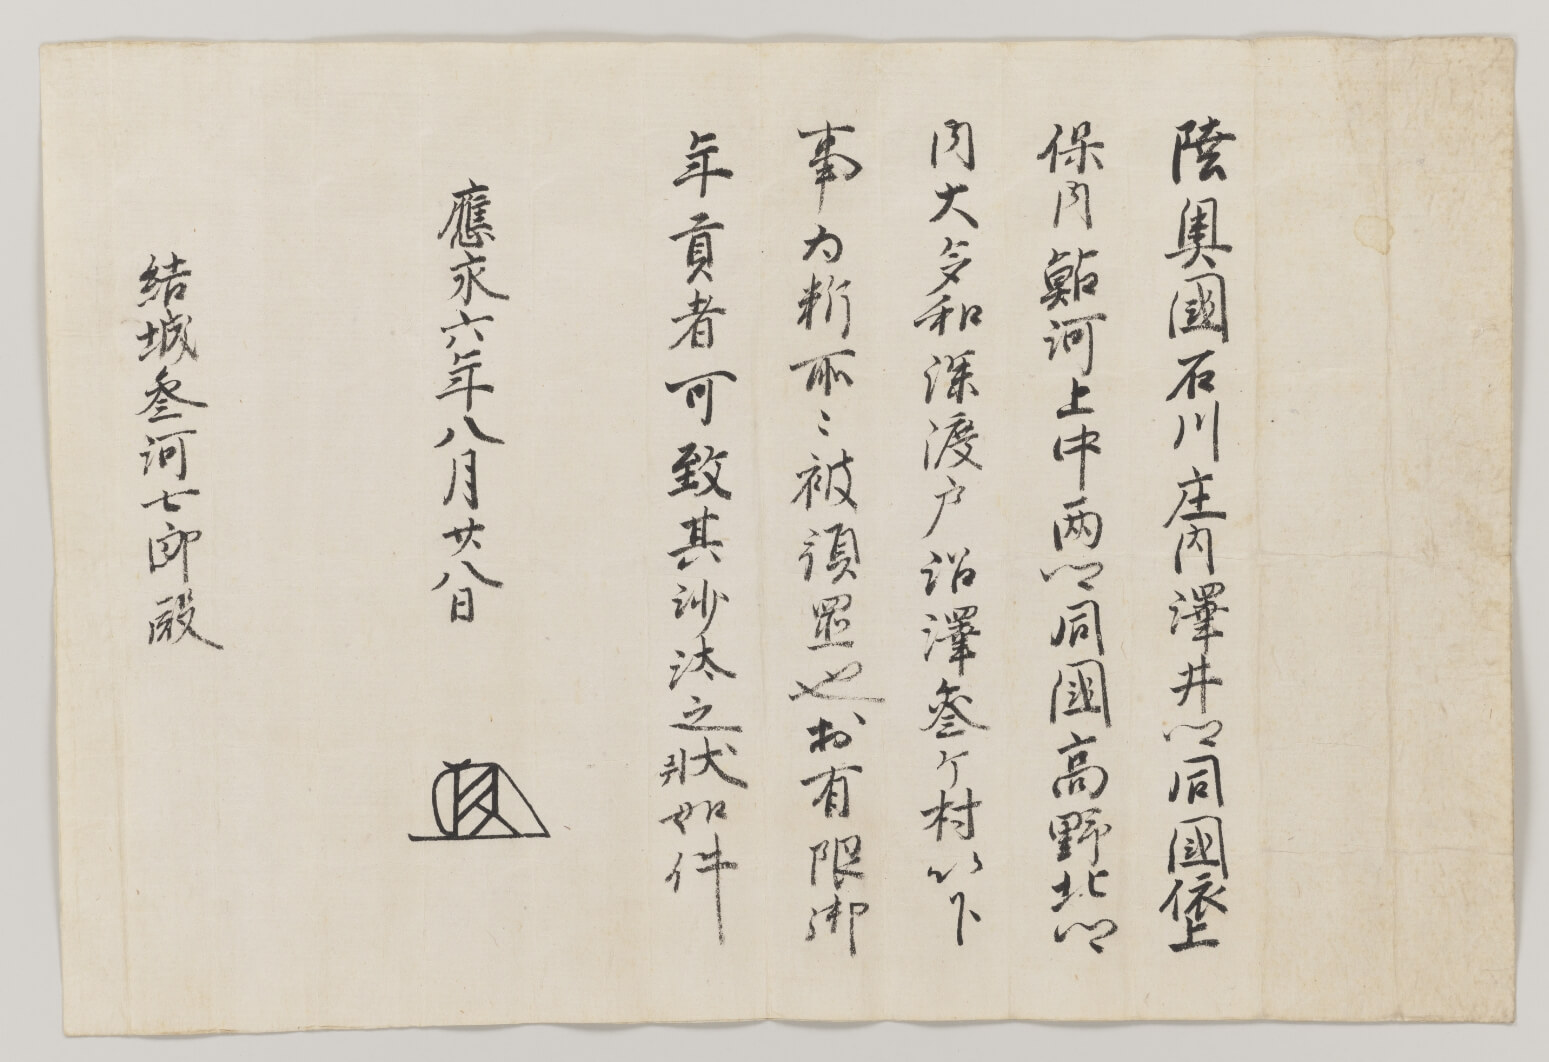 陸奥國石川庄内澤井郷同國依上
保内鮎河上中両郷同國高野北郷
内大多和深渡戸沼澤叁ケ村以下
事为析所々被預置也於有限御
年貢者可致其沙汰之状如件
應永六年八月廿八日
結城叁河七郎殿